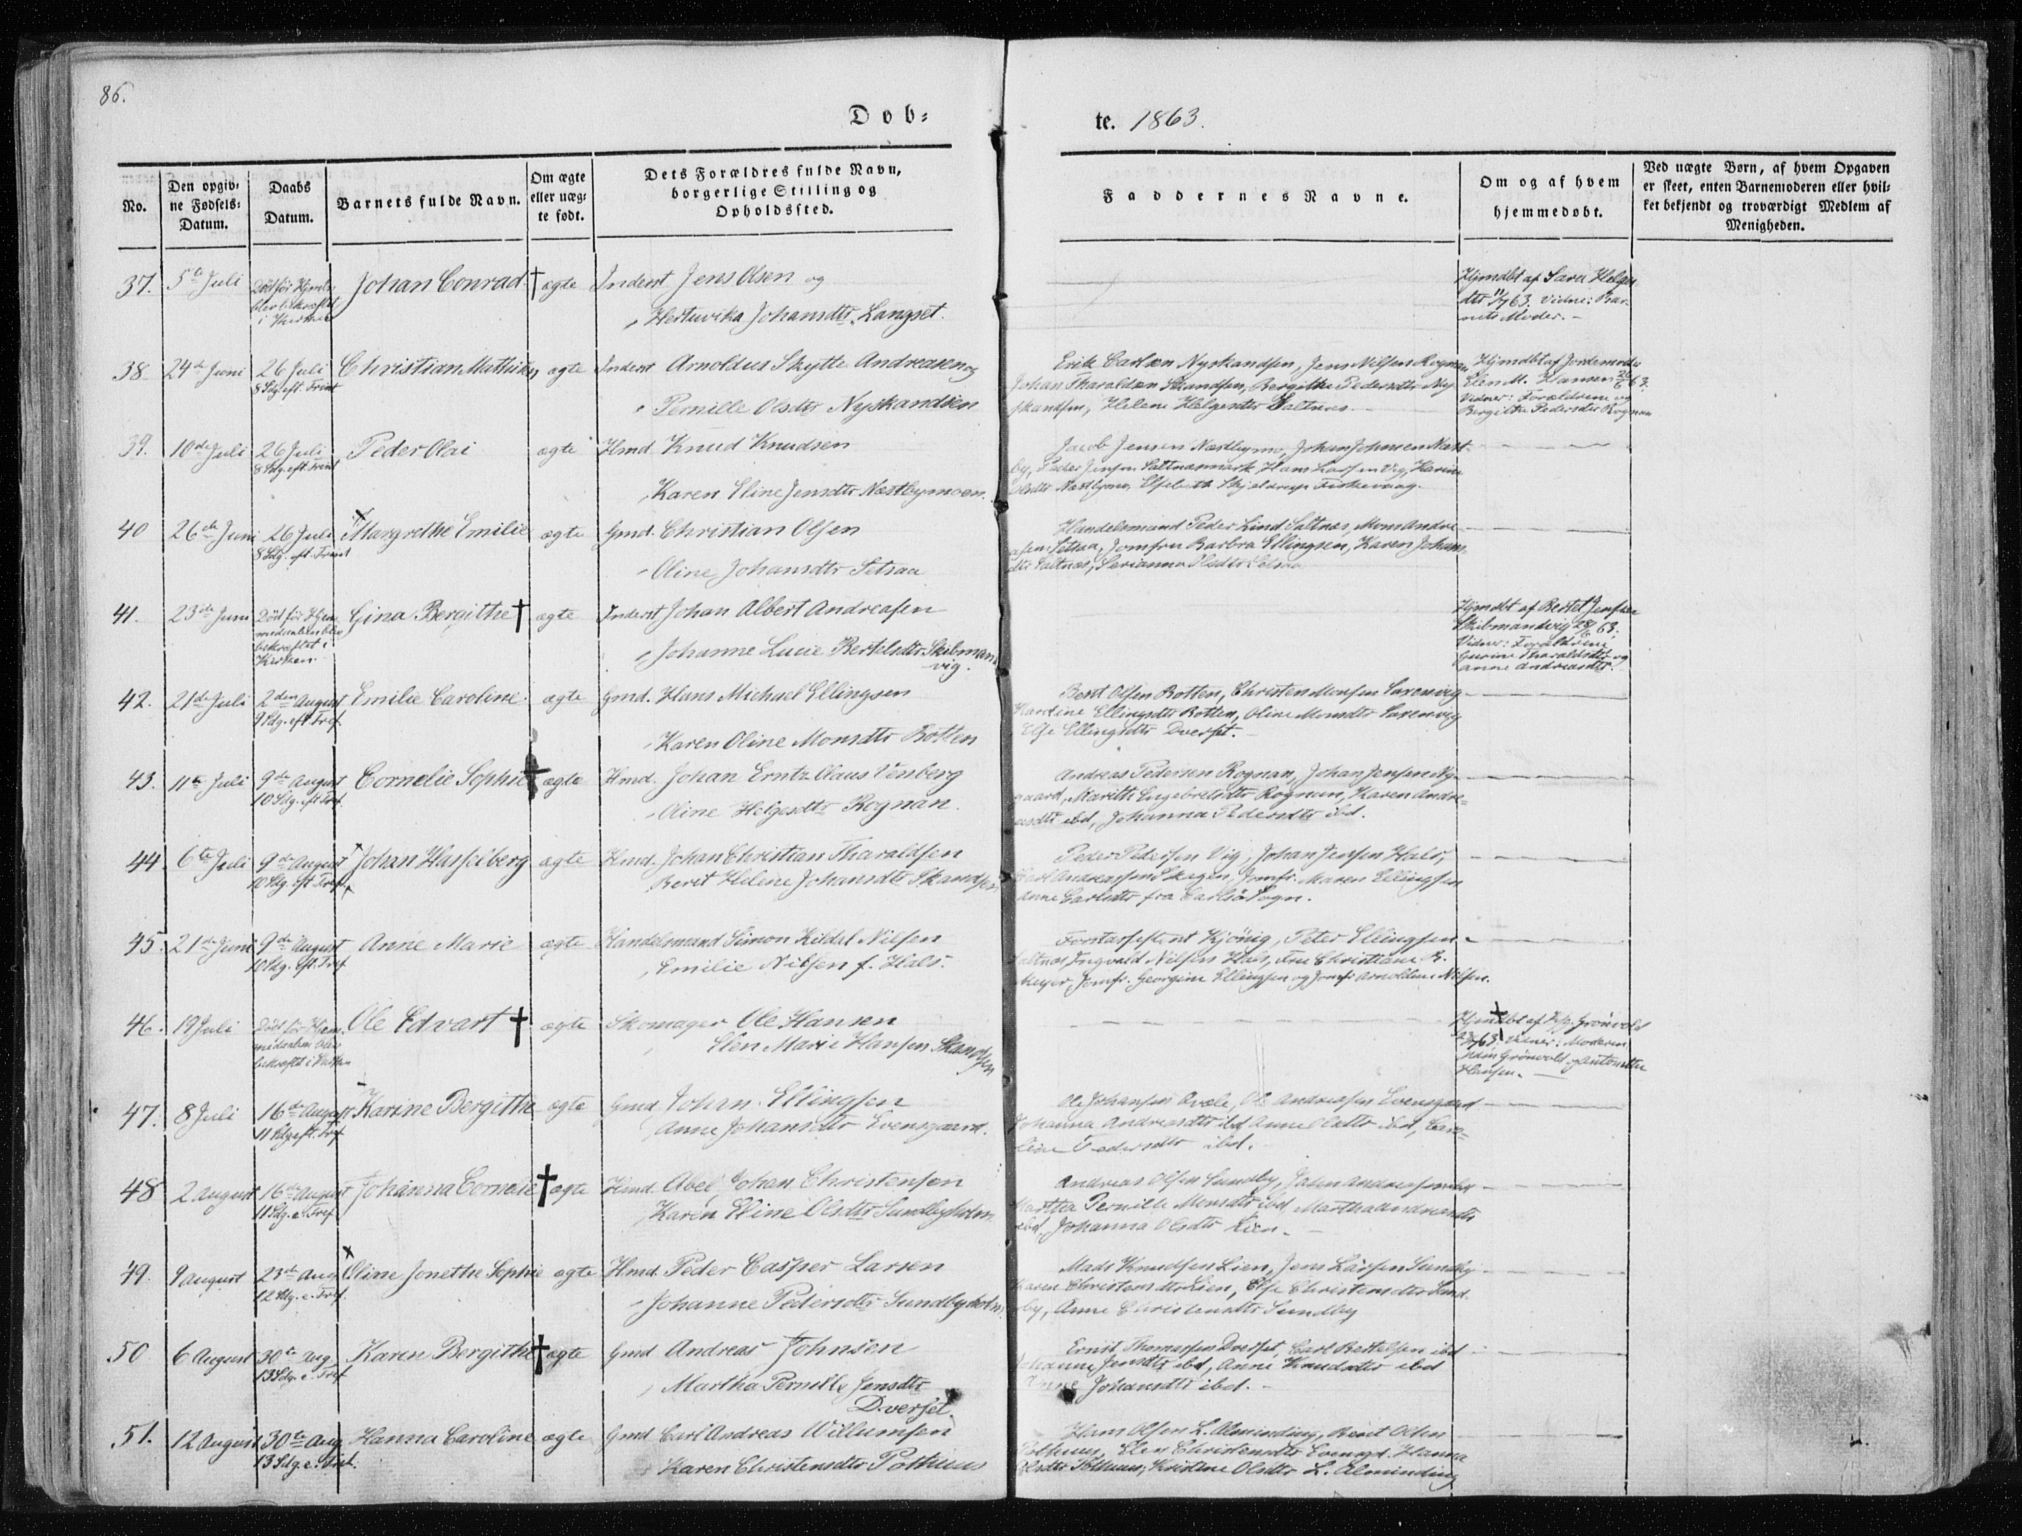 86.
Døb=
te. 1863.
No.
Den opgiv-
ne Fødsels-
Datum.
Daabs
Datum.
Barnets fulde Navn.
Om ægte
eller uæg-
te født.
Dets Forældres fulde Navn,
borgerlige Stilling og
Opholdssted.
Faddernes Navne.
Om og af hvem
hjemmedøbt.
Ved uægte Børn, af hvem Opgaven
er skeet, enten Barnemoderen eller hvil-
ket bekjendt og troværdigt Medlem af
Menigheden.
37. 5te Juli
Død før Hjmdb.
blev bekræftet
i Kirken
Johan Conrad † ægte
Inderst Jens Olsen og
Hertuvika Johansdtr. Langset.
Hjmdbt af Sara Helges
dtr 11/7 63. Vidne: Bar-
nets Moder. -
38. 24de Juni
26 Juli
8 Sdg. eft. Trinit
Christian Mathias ægte
Inderst Arnoldus Skytte Andreasen og
Pernille Olsdtr Nyskandsen
Erik Carlsen Nyskandsen, Jens Nilsen Rognan
Johan Tharaldsen Skandsen, Bergithe Pedersdtr Ny-
skandsen, Helene Helgesdtr Saltnes
Hjmdbt af Jordemoder
Elen M. Hansen 26/6 63.
Vidner: Forældrene og
Bergitha Pedersdtr Rognan
39. 10de Juli
26 Juli
8 Sdg. eft. Trinit
Peder Olai ægte
Hmd Knud Knudsen
Karen Eline Jensdtr Næstbymoen.
Jacob Jensen Næstbymo, Johan Johnsen Næst-
by, Peder Jensen Saltnesmark, Hans Larsen Vig, Karen
Olsdtr Næstbymo, Elsebeth Skjeldrup Fiskevaag.
40 26de Juni
26 Juli
8 Sdg. eft. Trinit
Margrethe Emilie ægte
Gmd. Christian Olsen
Oline Johansdtr Setsaa
Handelsmand Peder Lind Saltnes, Mons Andre
asen Setsaa, Jomfru Barbra Ellingsen, Karen Johans
dtr Saltnes,
41. 23de Juni
Død før Hjem
medaaben blev
bekræftet i
Kirken.
Gina Bergithe † ægte
Inderst Johan Albert Andreasen
Johanne Lucie Bertelsdtr Skibmand
vig.
Hjmdbt af Bertel Jensen
Skibmandvig 28/6 63.
Vidner: Forældrene
Gurine Tharaldsdtr og
Anne Andreasdtr.
42. 21de Juli
2den August
9 Sdg. eft. Tref.
Emilie Caroline ægte
Gmd. Hans Michael Ellingsen
Karen Oline Monsdtr Botten
Berit Olsen Botten, Christen Monsen Saxenvig
Hardine Ellingsdtr Botten, Oline Monsdtr Saxenvig
Else Ellingsdtr Dverset.
43. 11te Juli
9de August
10 Sdg. eft Tref.
Cornelie Sophie † ægte
Hmd. Johan Erntz Claus Venberg
Oline Helgesdtr Rognan.
Andreas Pedersen Rognan, Johan Jensen Ny-
gaard, Marith Engebretsdtr Rognan, Karen Andre-
asdtr ibd, Johanna Pedersdtr ibd.
44 6te Juli
9de August
10 Sdg. eft. Tref.
Johan Hasselberg ægte
Hmd. Johan Christian Tharaldsen
Berit Helene Johansdtr Skandsen
Peder Pedersen Vig, Johan Jensen Hals,
Andreassen Skagen, Jomfr. Maren Ellingsen
Anne Carlsdtr fra Carlsø Sogn.
45. 21de Juni
9de August
10 Sdg. eft. Tref.
Anne Marie ægte
Handelsmand Simon Kildal Nilsen
Emilie Nilsen f. Hals.
Forstassistent Kjønig, Peter Ellingsen
Saltnes, Ingvald Nilsen Hals, Frue Christiane B.
Meyer, Jomfr. Georgine Ellingsen og Jomfr. Arnoldine Nilsen.
46. 19 Juli
Død før Hjem
medaaben blev
bekræftet i Kirken
Ole Edvart † ægte
Skomager Ole Hansen
Elen Marie Hansen Skandsen
Hjmdbt af Grønvold
23/7 63. Vidner: Moderen
Grønvold og Antonette
Hansen.
47. 8 Juli
16de August
11 Sdg. eft. Tref.
Karine Bergithe ægte
Gmd. Johan Ellingsen
Anne Johansdtr Evensgaard.
Ole Johansen Qvæle, Ole Andreassen Evensgaard
Johanna Andreasdtr ibd Anne Olsdtr ibd, Caro-
line Pedersdtr ibd.
48 2 August
16de August
11 Sdg. e. Tref
Johanna Cornelie † ægte
Hmd. Abel Johan Christensen
Karen Eline Olsdtr Sundbyholm
Andreas Olsen Sundby, Johan Andreassen ibd
Martha Pernille Monsdtr ibd Martha Andreasdtr
ibd, Johanna Olsdtr Lien.
49. 9 August
23de Aug
12 Sdg. e. Tref.
Oline Jonetthe Sophie ægte
Hmd. Peder Casper Larsen
Johanne Pedersdtr Sundbyholm
Mads Knudsen Lien, Jens Larsen Sundby
Karen Christensdtr Lien, Else Christensdtr Sund-
by, Anne Christensdtr Sundby
50 6 August
30te Aug
13 Sdg. e. Tref
Karen Bergithe † ægte
Gmd Andreas Johnsen
Martha Pernille Jensdtr
Dverset.
Ernst Thomassen Dverset, Carl Bertelsen ibd
Johanna Jensdtr ibd, Anne Knudsdtr ibd
Johansdtr ibd.
51. 12 August
30te Aug
13 Sdg. e. Tref.
Hanna Caroline ægte
Gmd Carl Andreas Willumsen
Karen Christensdtr Pothuus
Hans Olsen L. Alminding, Berit Olsen
Pothuus, Elen Christensdtr Evensgd. Hanna
Olsdtr Pothuus, Kristine Olsdtr L. Alminding